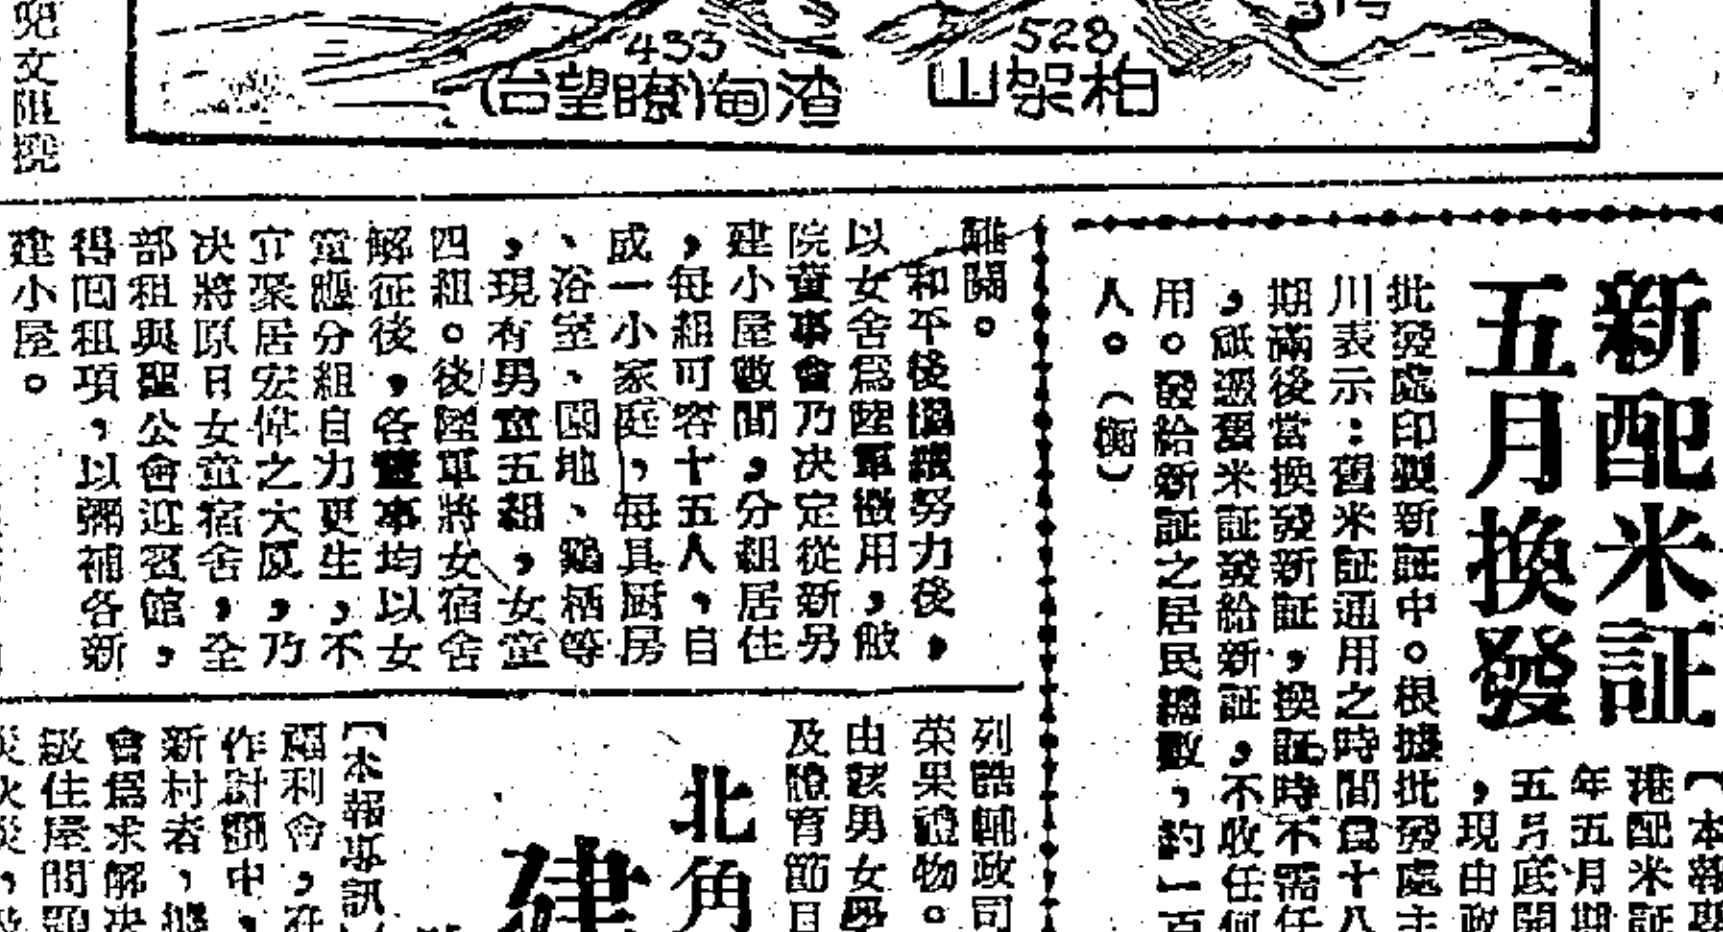 433
528
渣甸(瞭望台)
柏架山
新配米証
五月換發
港配米証
年五月期
五月底開
，現由政
批發處印製新証中。根據批發處主
川表示：舊米証通用之時間為十八
期滿後當換發新証，換証時不需任
，祇憑舊米証發給新証，不收任何
用。發給新証之居民總數，約一百
人。（衡）
難關。
和平後繼續努力後，
以女舍為陸軍徵用，故
院董事會乃决定從新另
建小屋數間，分組居住
，每組可容十五人，自
成一小家庭，每具厨房
、浴室、園地、鷄栖等
，現有男童五組，女童
四組。後陸軍將女宿舍
解征後，各董事均以女
童應分組自力更生，不
宜聚居宏偉之大厦，乃
决將原日女童宿舍，全
部租與聖公會迎賓館，
得回租項，以彌補各新
建小屋。
列誥輔政司
菓果禮物。
由該男女學
及體育節目
北角
建
【本報專訊
福利會，在
作計劃中，
新村者，據
會為求解决
級住屋問題
災火災，